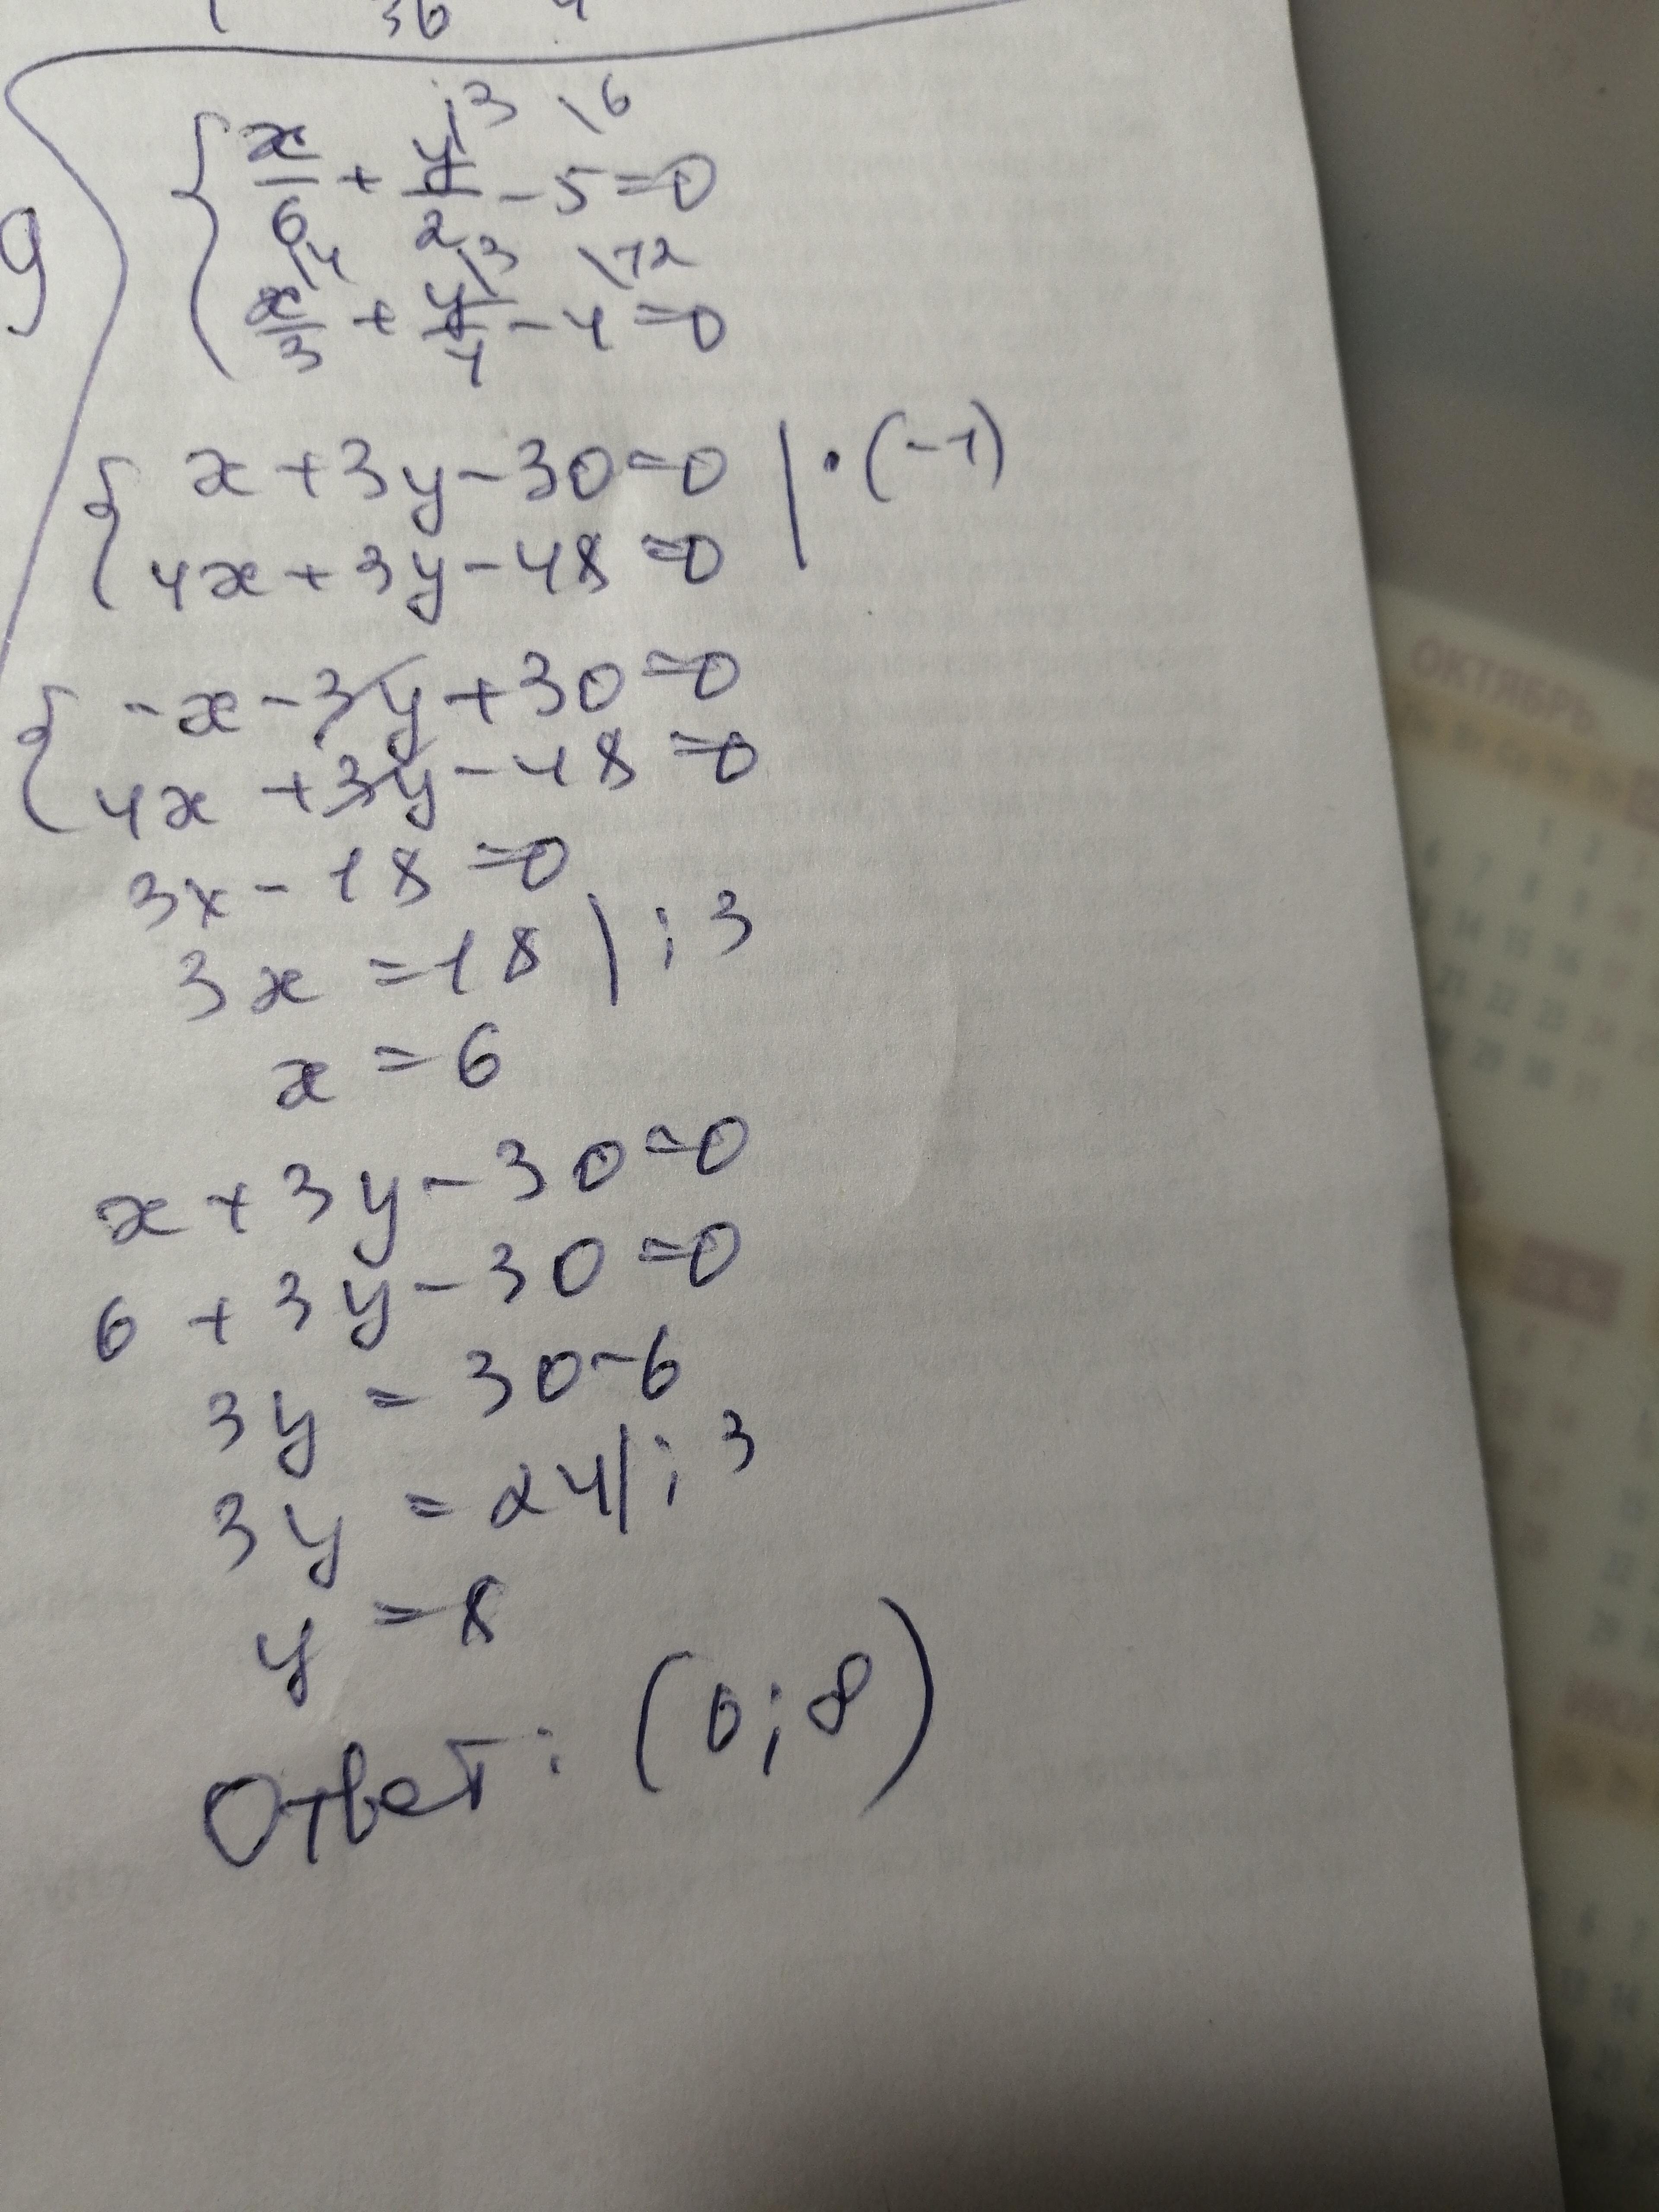 36 4
\3 \6
x/6 + y/2 - 5 = 0
\4 \3 \12
x/3 + y/4 - 4 = 0
9
x + 3y - 30 = 0 | · (-1)
4x + 3y - 48 = 0
-x - 3y + 30 = 0
4x + 3y - 48 = 0
3x - 18 = 0
3x = 18 | : 3
x = 6
x + 3y - 30 = 0
6 + 3y - 30 = 0
3y = 30 - 6
3y = 24 | : 3
y = 8
Ответ: (6; 8)
ОКТЯБРЬ